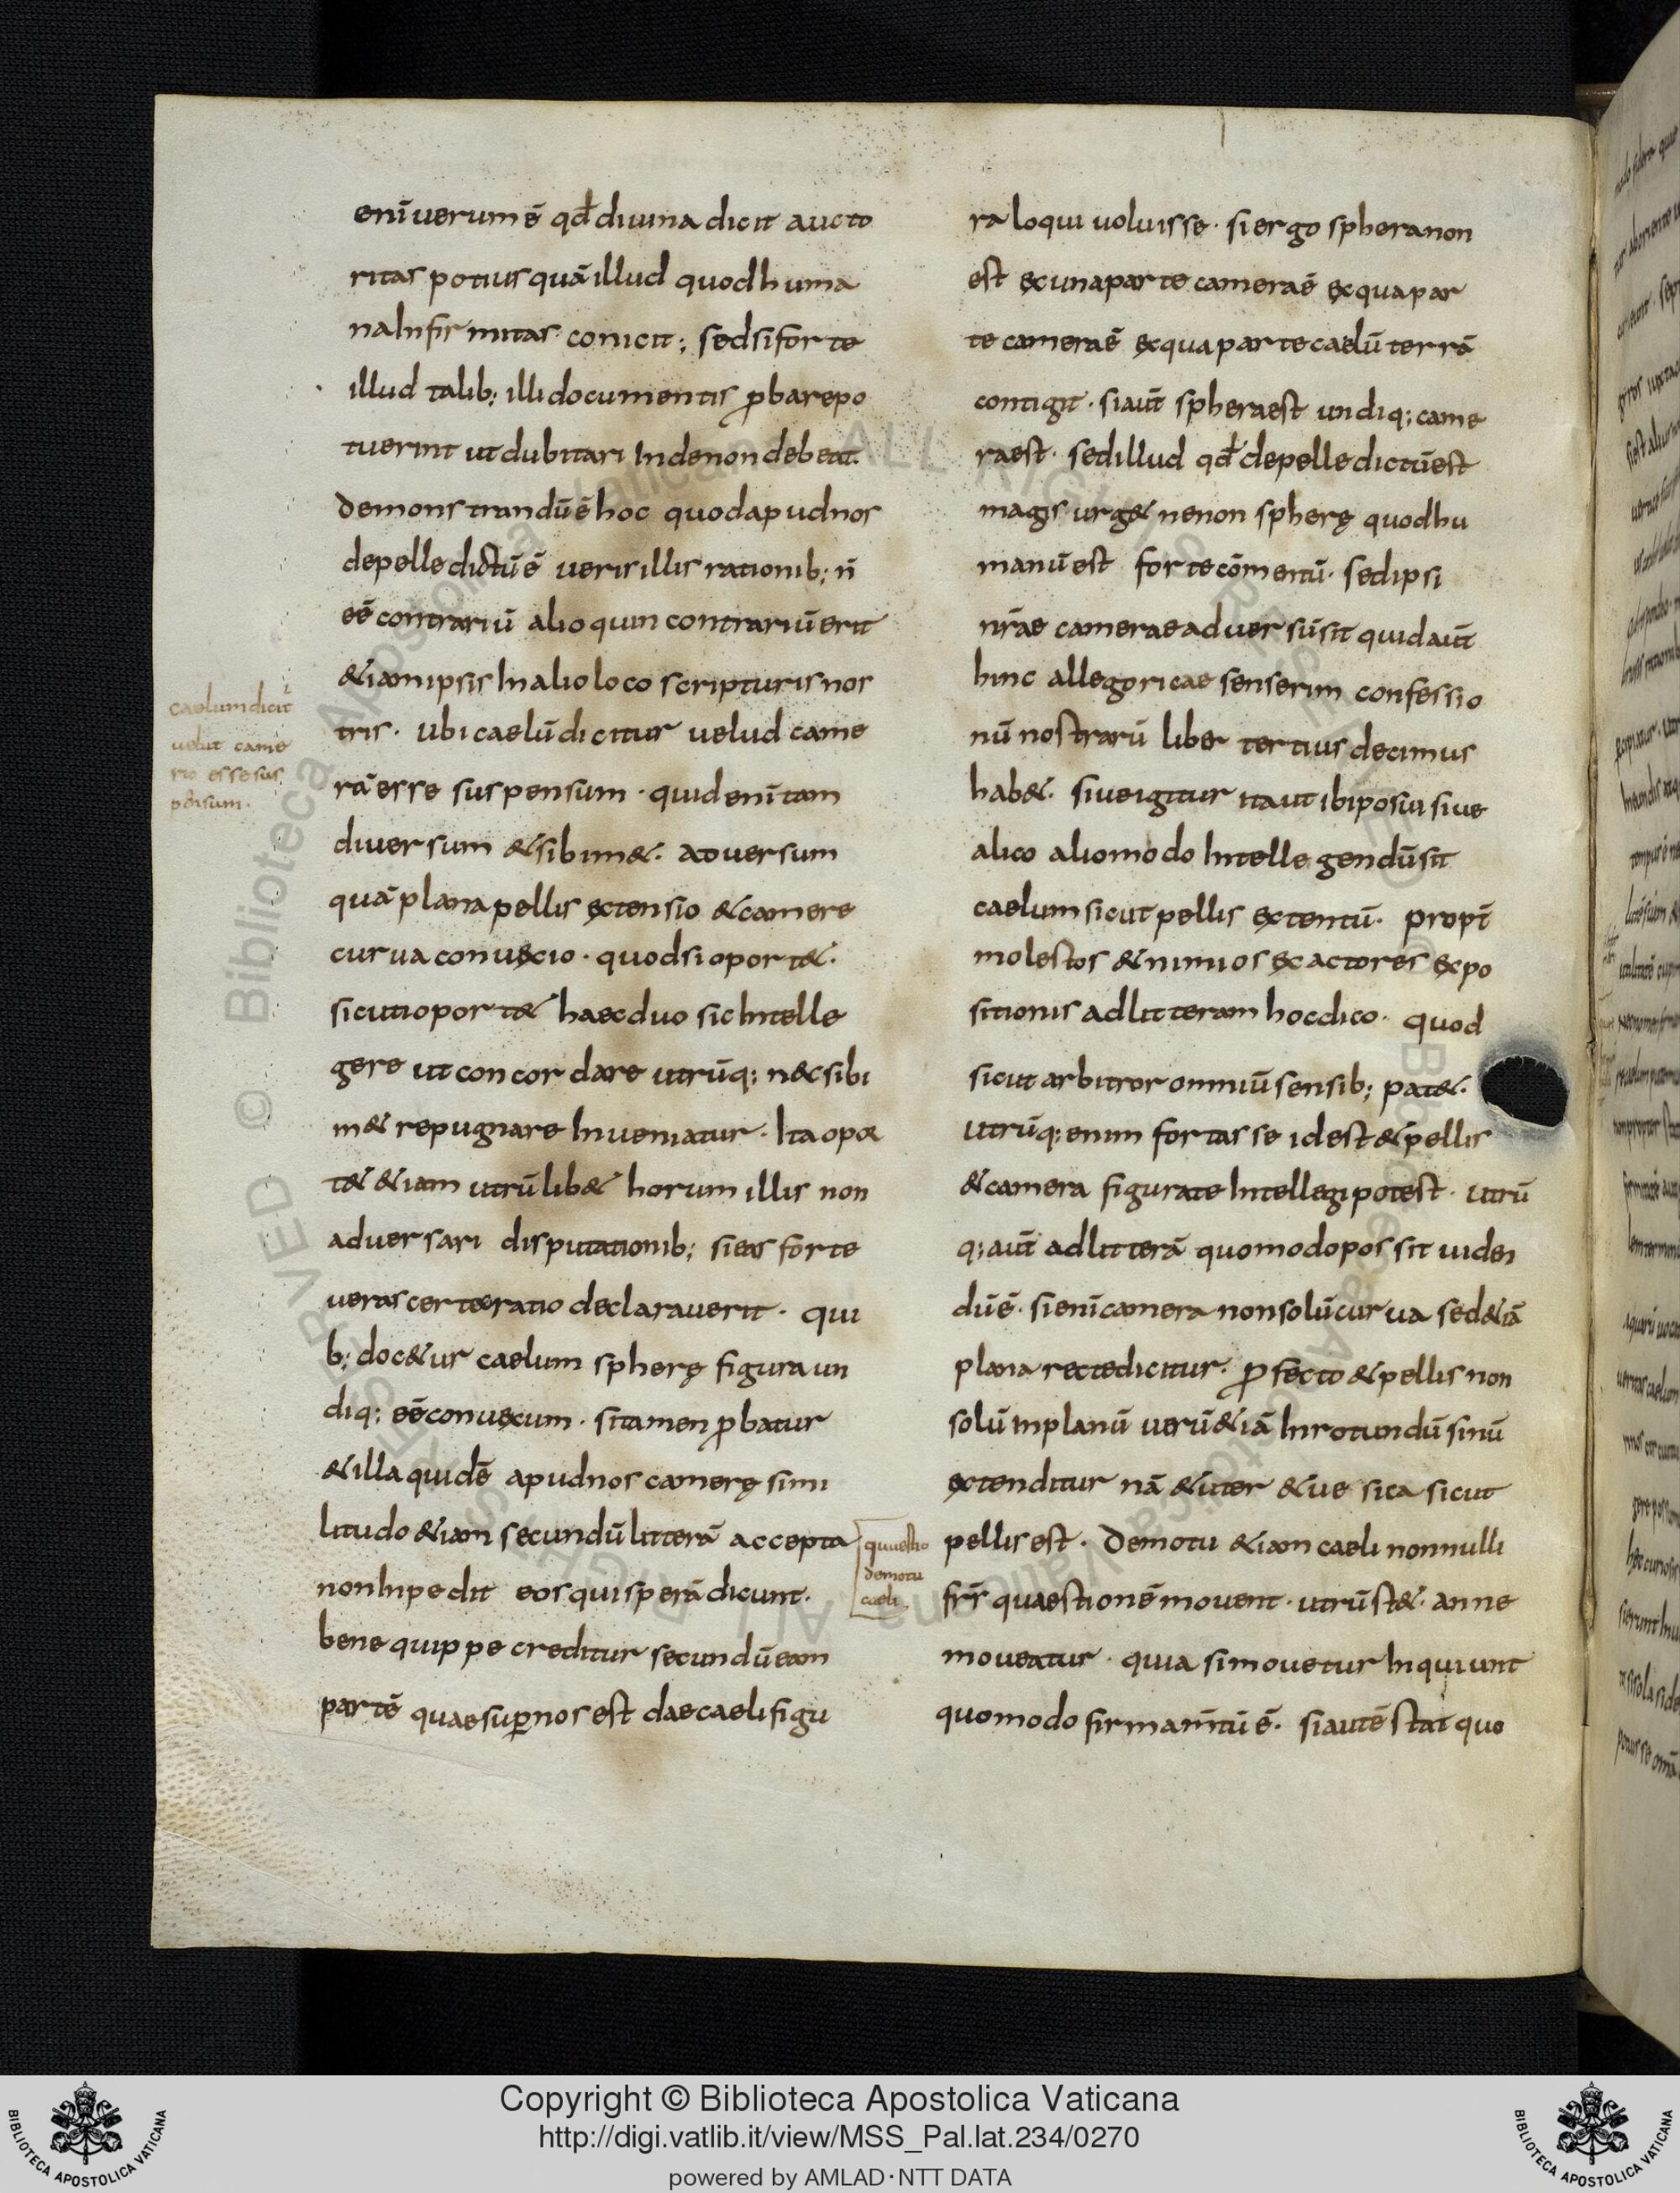 enī uerum ē qđ diuina dicit aucto
ritas potius quā illud quod huma
na infirmitas conicit; sed si forte
illud talib; illi documentis ꝓbare po
tuerint ut dubitari inde non debeat.
demonstrandū ē hoc quod apud nos
de pelle dictū ē ueris illis rationib; ñ
eē contrariū alioquin contrariū erit
&iam ipsis in alio loco scripturis nos
tris · ubi caelū dicitur uelud came
rā esse suspensum · quid enī tam
diuersum & sibim&· aduersum
quā plana pellis extensio & camere
curua conuexio · quod si oport&·
sicuti oport& haec duo sic intelle
gere ut concordare utrūq; nec sibi
m& repugnare inueniatur · Ita opor
t& &iam utrū lib& horum illis non
aduersari disputationib; si eas forte
ueras certa ratio declarauerit · qui
b; doc&ur caelum spherę figura un
diq; eē conuexum · si tamen ꝓbatur
& illa quidē apud nos camerę simi
litudo &iam secundū litterā accepta
non inpedit eos qui sperā dicunt·
bene quippe creditur secundū eam
partē quae suꝑ nos est dae caeli figu
caelum dicit
uelut came
ra esse sus
pensum·
ra loqui uoluisse · si ergo sphera non
est ex una parte camera ē ex qua par
te camera ē ex qua parte caelū terrā
contigit · si aut̄ sphera est undiq; came
ra est · sed illud qđ de pelle dictū est
magis urg& ne non spherę quod hu
manū est forte cōmentū · sed ipsi
nr̄ae camerae aduersū sit quid aut̄
hinc allegoricae senserim confessio
nū nostrarū liber tertius decimus
hab&· siue igitur ita ut ibi posui siue
alico alio modo intellegendū sit
caelum sicut pellis extentū · propt̄
molestos & nimios exactores expo
sitionis ad litteram hoc dico · quod
sicut arbitror omniū sensib; pat&·
utrūq; enim fortasse id est & pellis
& camera figurate intellegi potest · utrū
q; aut̄ ad litterā quomodo possit uiden
dū ē · si enī camera non solū curua sed &iā
plana recte dicitur · ꝓfecto & pellis non
solū in planū uerū &iā in rotundū sinū
extenditur nā & uter & uesica sicut
pellis est · De motu &iam caeli nonnulli
frs̄ quaestionē mouent · utrū st&· anne
moueatur · quia si mouetur inquiunt
quomodo firmam̄tū ē · si autē stat quo
quaestio
de motu
caeli
Copyright © Biblioteca Apostolica Vaticana
http://digi.vatlib.it/view/MSS_Pal.lat.234/0270
powered by AMLAD·NTT DATA
BIBLIOTECA APOSTOLICA VATICANA
BIBLIOTECA APOSTOLICA VATICANA